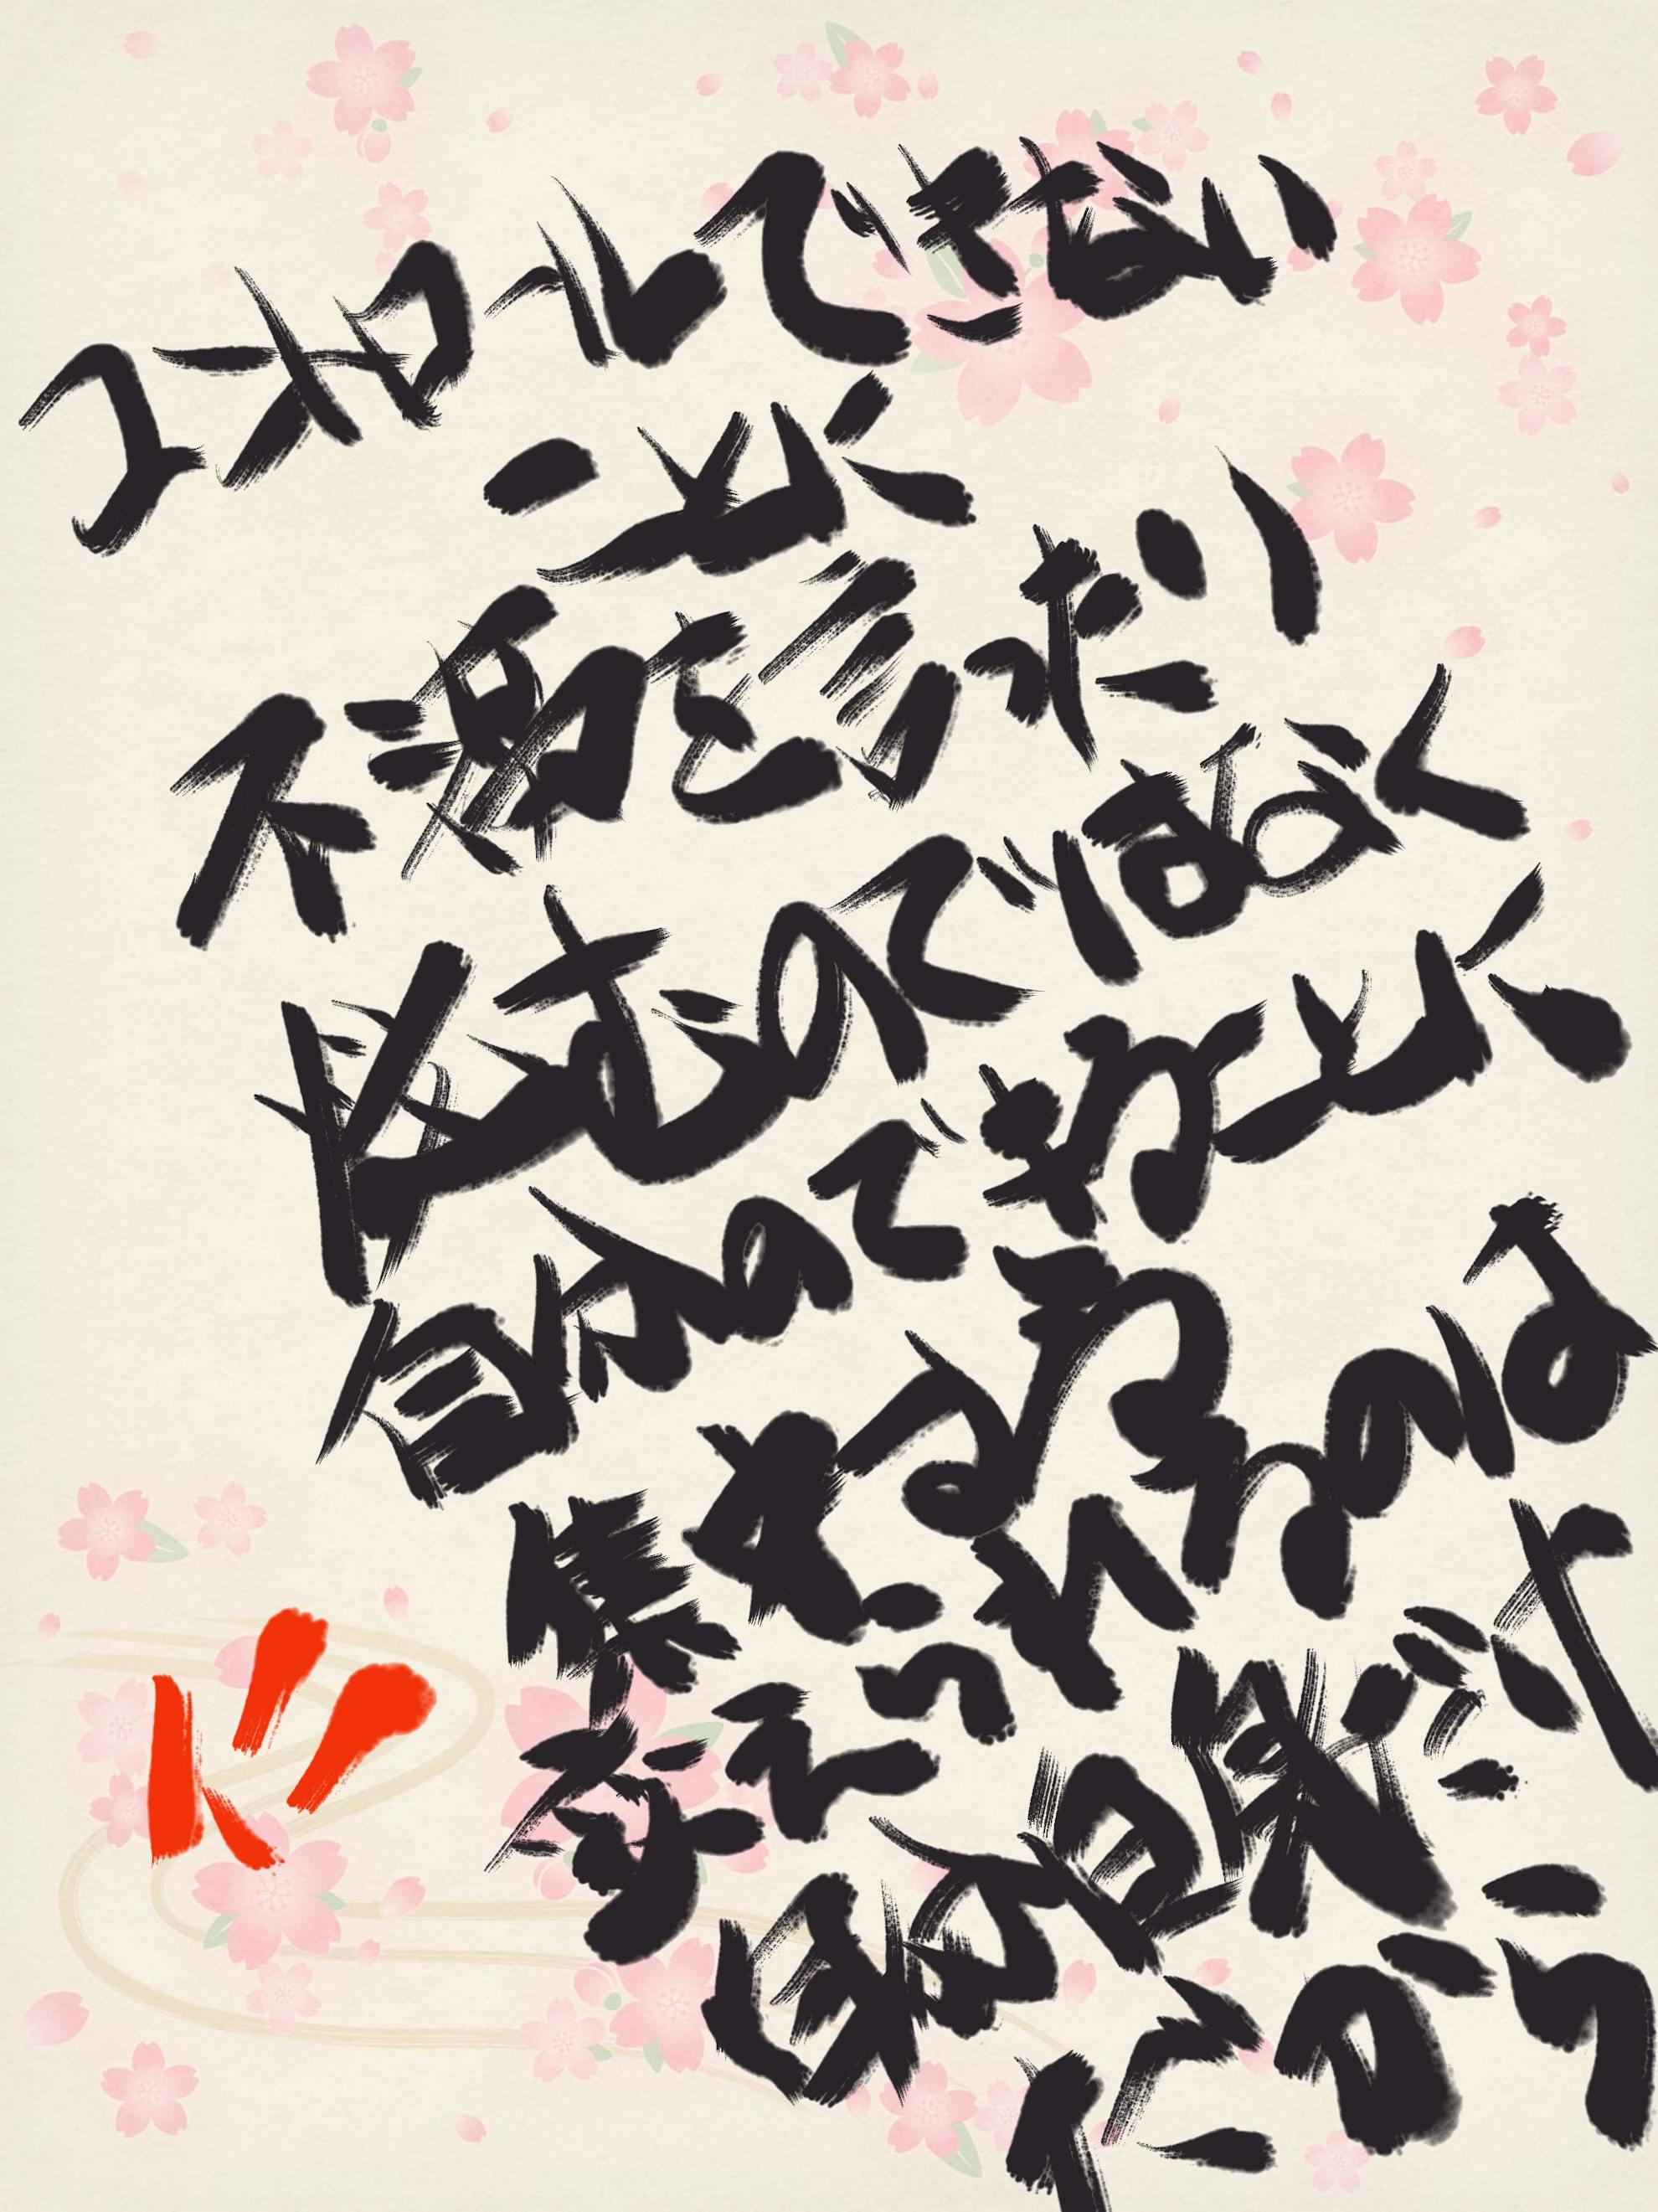 コントロールできない
ことに
不満を言ったり
むのではなく
自分のできることに
集中する
変えられるのは
自分自身だけ
だから